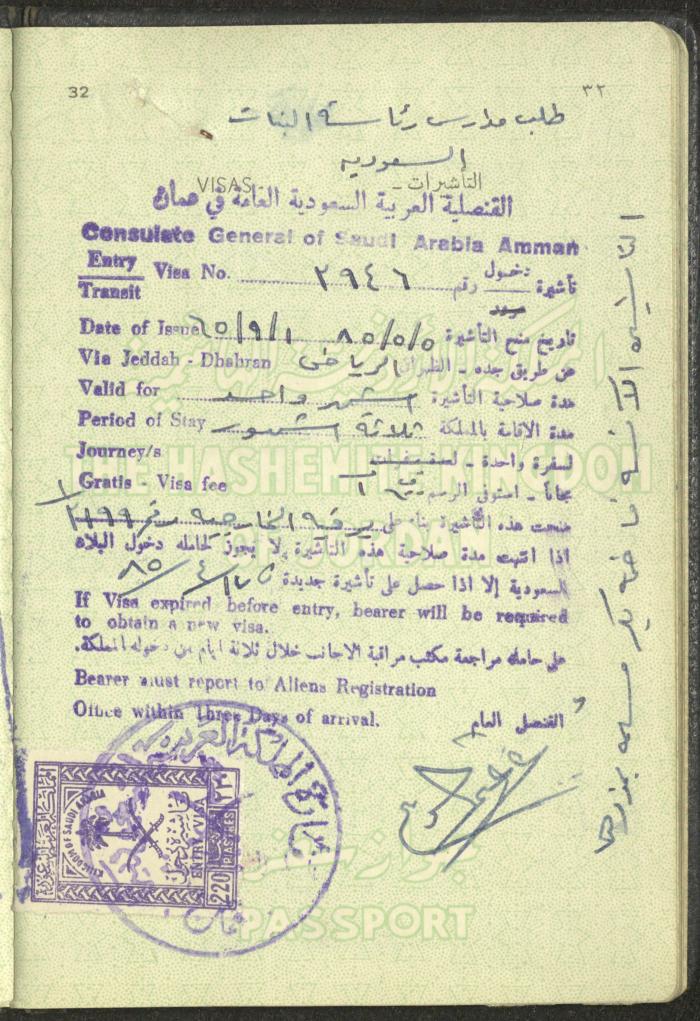 32 ٣٢
طلب مدارس رئاسة البنات
السعوديه
VISAS التأشيرات ـ
القنصلية العربية السعودية العامة في عمان
Consulate General of Saudi Arabia Amman
Entry Visa No. ٢٩٤٦ تأشيرة دخول رقم
Transit مرور
Date of Issue ٦٥/٩/١ ٨٥/٥/٥ تاريخ منح التأشيرة
Via Jeddah - Dhahran الرياض عن طريق جده - الظهران
Valid for شهر واحد مدة صلاحية التأشيرة
Period of Stay ثلاثة اشهور مدة الاقامة بالمملكة
Journey/s لسفرة واحدة - لسفرات
Gratis - Visa fee مجاناً - استوفى الرسم
منحت هذه التأشيرة بناء على برقية الخارجية رقم ٢١٩٩/١
اذا انتهت مدة صلاحية هذه التأشيرة لا يجوز لحامله دخول البلاد
السعودية إلا اذا حصل على تأشيرة جديدة ١٧/٤/٨٥
If Visa expired before entry, bearer will be required
to obtain a new visa.
على حامله مراجعة مكتب مراقبة الاجانب خلال ثلاثة ايام من دخوله المملكة.
Bearer must report to Aliens Registration
Office within Three Days of arrival. القنصل العام
THE HASHEMITE KINGDOM
OF JORDAN
جواز سفر
PASSPORT
KINGDOM OF SAUDI ARABIA
ENTRY VISA
220 PIASTRES
٢٢٠